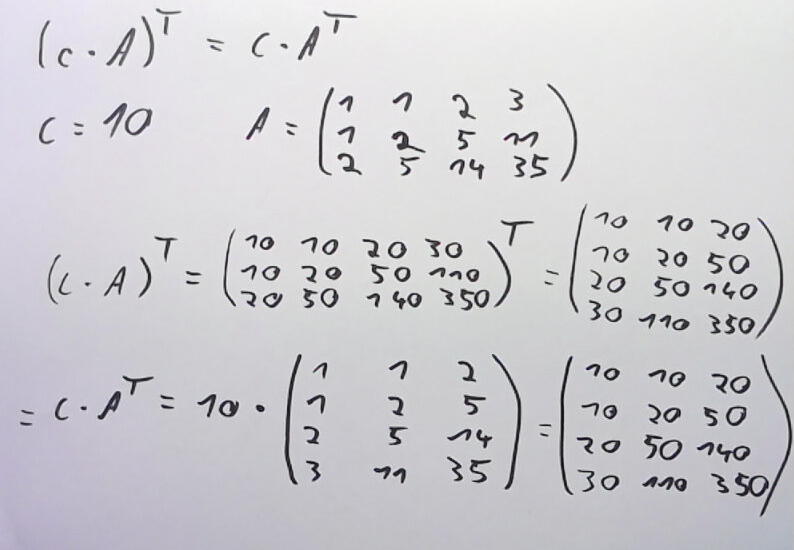 (c · A)^T = c · A^T
c = 10 A = (1 1 2 3
1 2 5 11
2 5 14 35)
(c · A)^T = (10 10 20 30
10 20 50 110
20 50 140 350)^T = (10 10 20
10 20 50
20 50 140
30 110 350)
= c · A^T = 10 · (1 1 2
1 2 5
2 5 14
3 11 35) = (10 10 20
10 20 50
20 50 140
30 110 350)